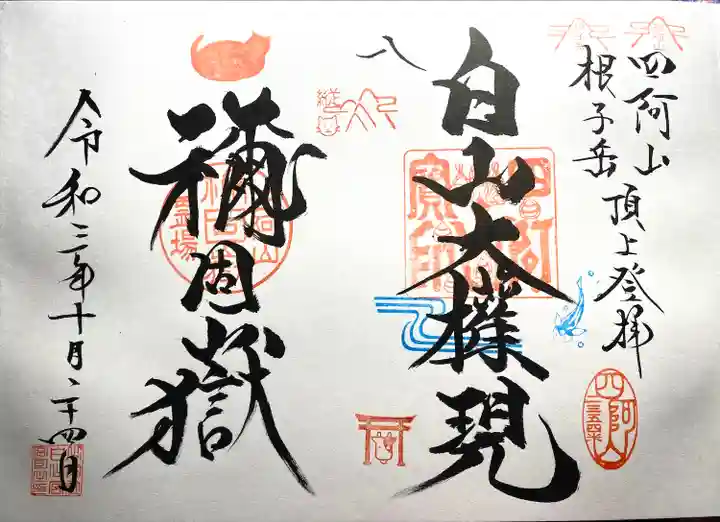 四阿山
根子岳
頂上登拝
四阿山
二三五四米
八
白山大権現
禰固嶽
令和三年十月二十四日